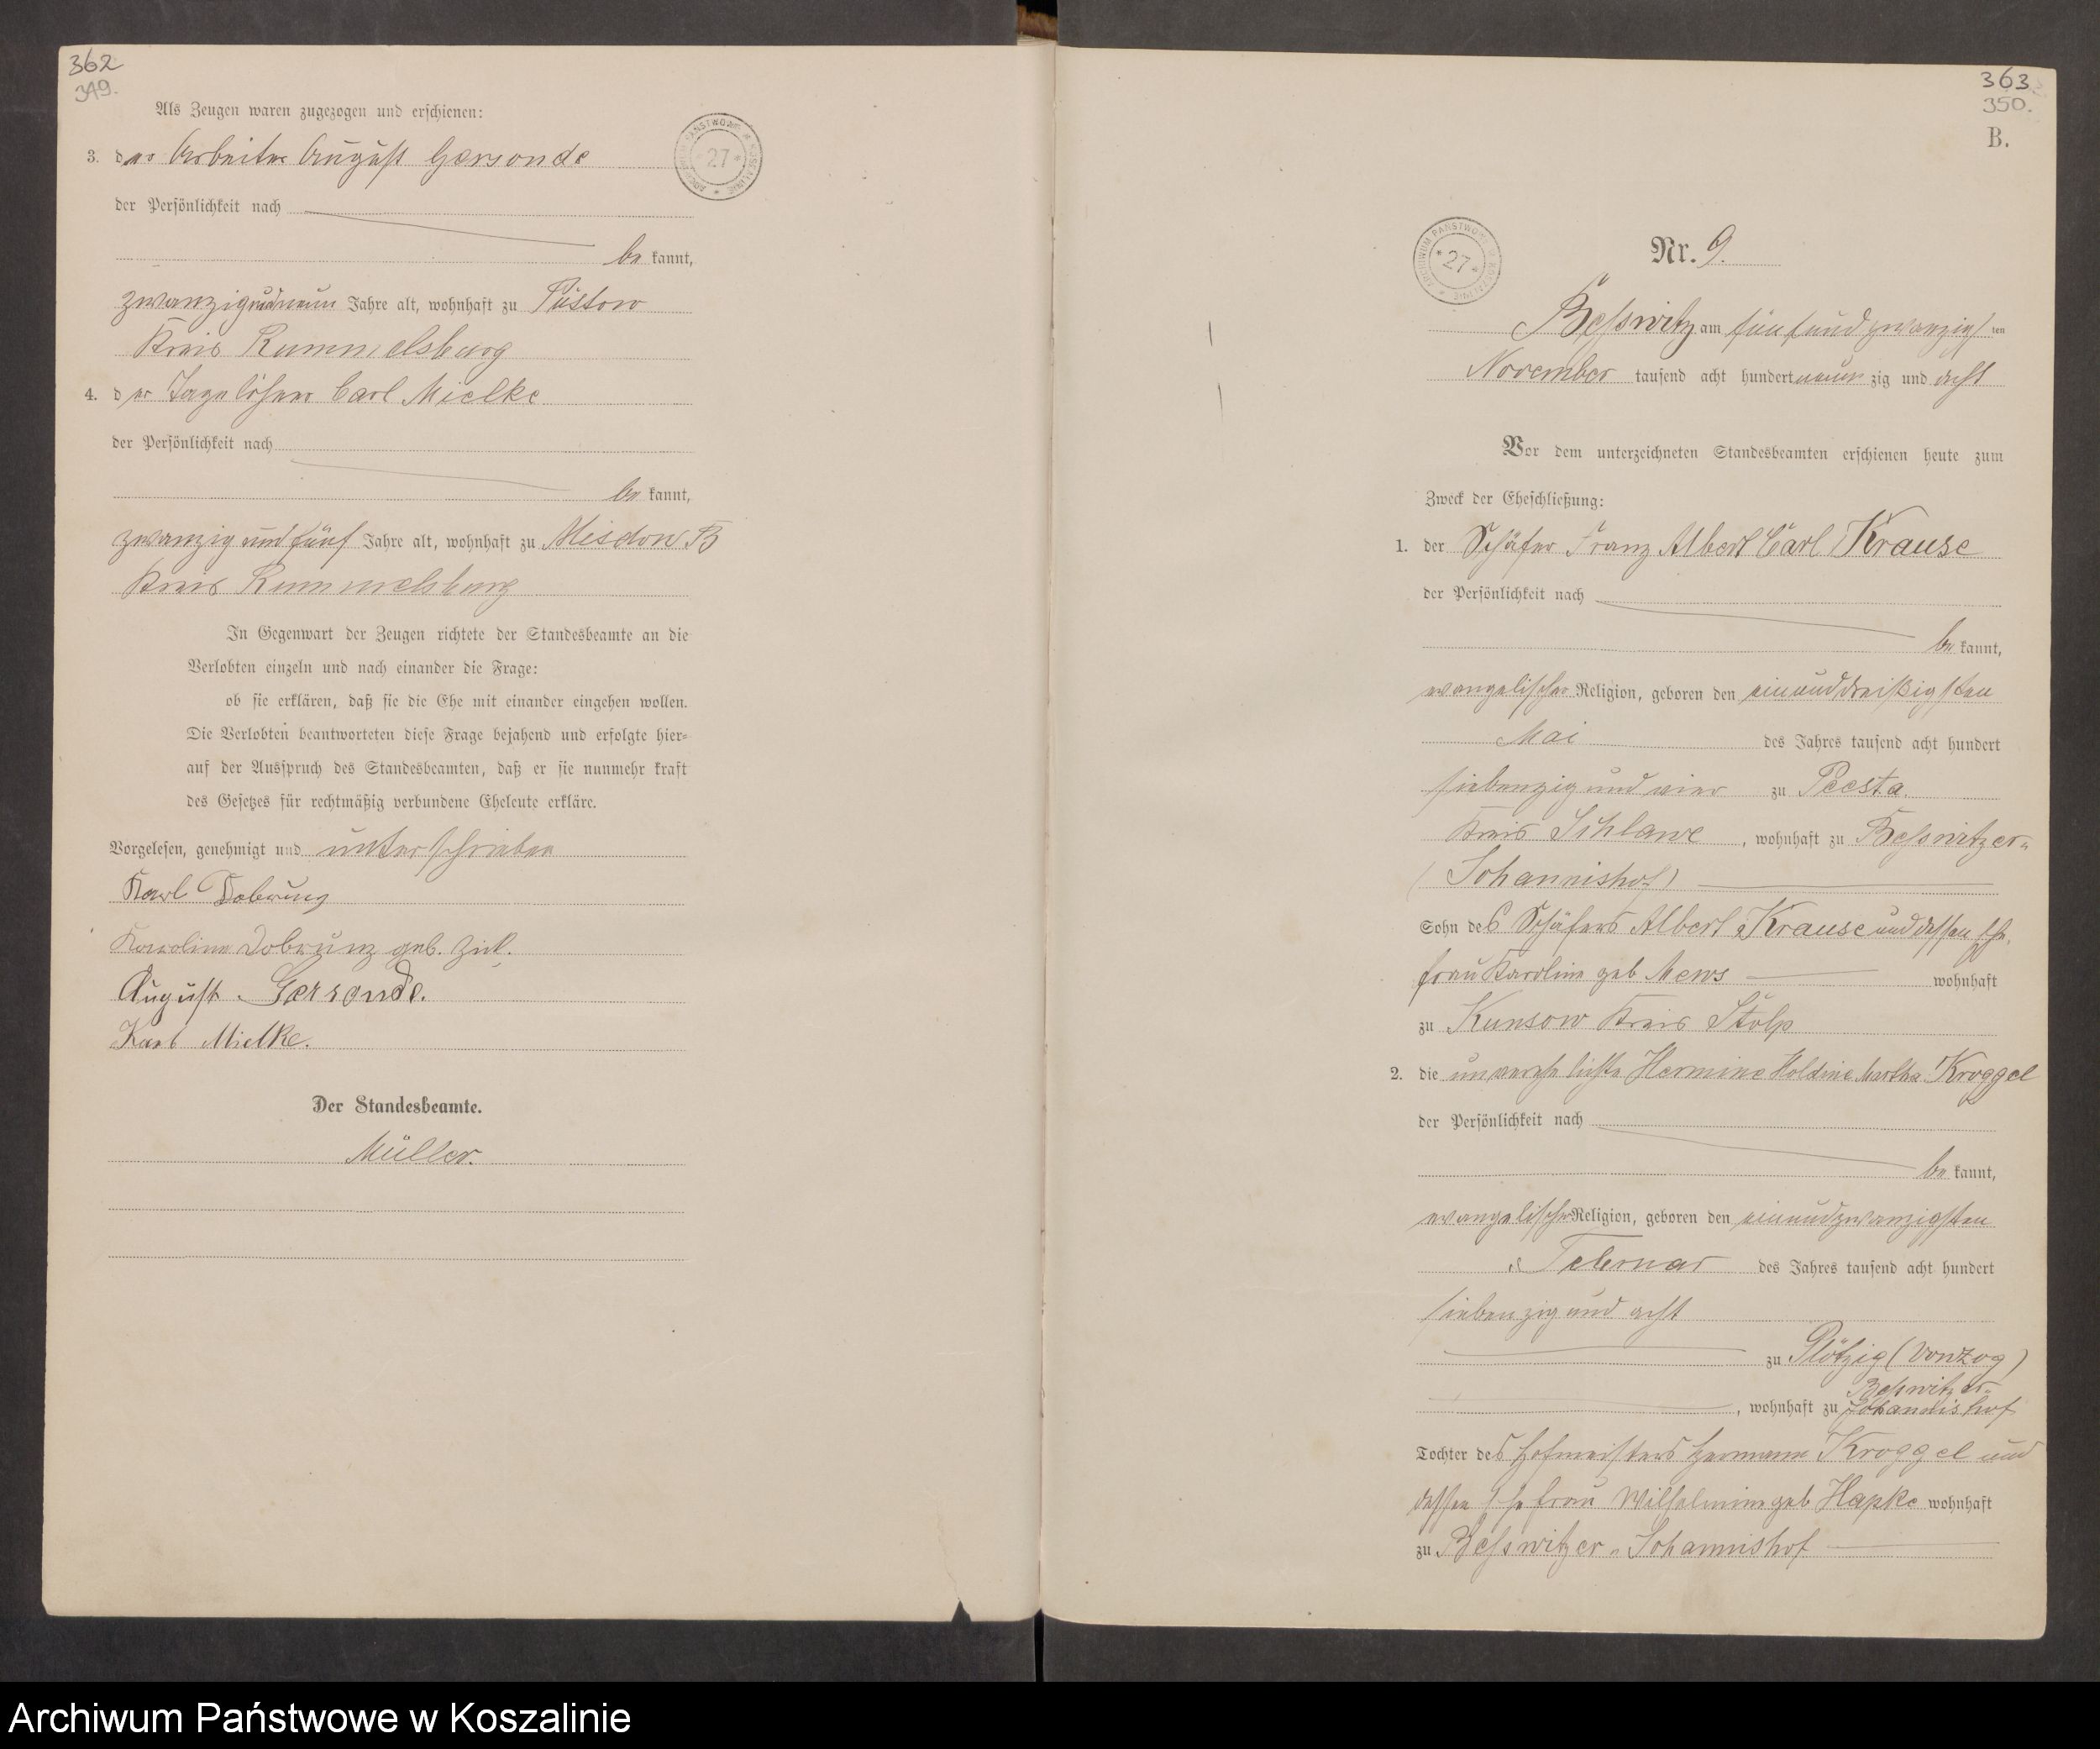 362
349.
Als Zeugen waren zugezogen und erschienen:
3. der Arbeiter August Gersonde
der Persönlichkeit nach
be kannt,
zwanzig und neun Jahre alt, wohnhaft zu Püstow
Kreis Rummelsburg
4. der Tagelöhner Carl Mielke
der Persönlichkeit nach
be kannt,
zwanzig und fünf Jahre alt, wohnhaft zu Misdow B
Kreis Rummelsburg
In Gegenwart der Zeugen richtete der Standesbeamte an die
Verlobten einzeln und nach einander die Frage:
ob sie erklären, daß sie die Ehe mit einander eingehen wollen.
Die Verlobten beantworteten diese Frage bejahend und erfolgte hier-
auf der Ausspruch des Standesbeamten, daß er sie nunmehr kraft
des Gesetzes für rechtmäßig verbundene Eheleute erkläre.
Vorgelesen, genehmigt und unterschrieben
Karl Dobrunz
Karoline Dobrunz geb. Zick.
August Gersonde.
Karl Mielke.
Der Standesbeamte.
Müller.
ARCHIWUM PAŃSTWOWE W KOSZALINIE
* 27 *
363
350.
B.
ARCHIWUM PAŃSTWOWE W KOSZALINIE
* 27 *
Nr. 9.
Besswitz am fünfundzwanzigsten
November tausend acht hundert neunzig und acht
Vor dem unterzeichneten Standesbeamten erschienen heute zum
Zweck der Eheschließung:
1. der Schäfer Franz Albert Carl Krause
der Persönlichkeit nach
be kannt,
evangelischer Religion, geboren den einunddreißigsten
Mai des Jahres tausend acht hundert
siebenzig und vier zu Peest a.
Kreis Schlawe, wohnhaft zu Besswitzer-
(Johannishof)
Sohn des Schäfers Albert Krause und dessen Ehe-
frau Karoline geb Mews wohnhaft
zu Kunsow Kreis Stolp
2. die unverehelichte Hermine Holdine Martha Kroggel
der Persönlichkeit nach
be kannt,
evangelischer Religion, geboren den einundzwanzigsten
Februar des Jahres tausend acht hundert
siebenzig und acht
zu Plötzig (Vorwzog)
Besswitzer-
, wohnhaft zu Johannishof
Tochter des Hofmeisters Hermann Kroggel und
dessen Ehefrau Wilhelmine geb Hapke wohnhaft
zu Besswitzer-Johannishof
Archiwum Państwowe w Koszalinie